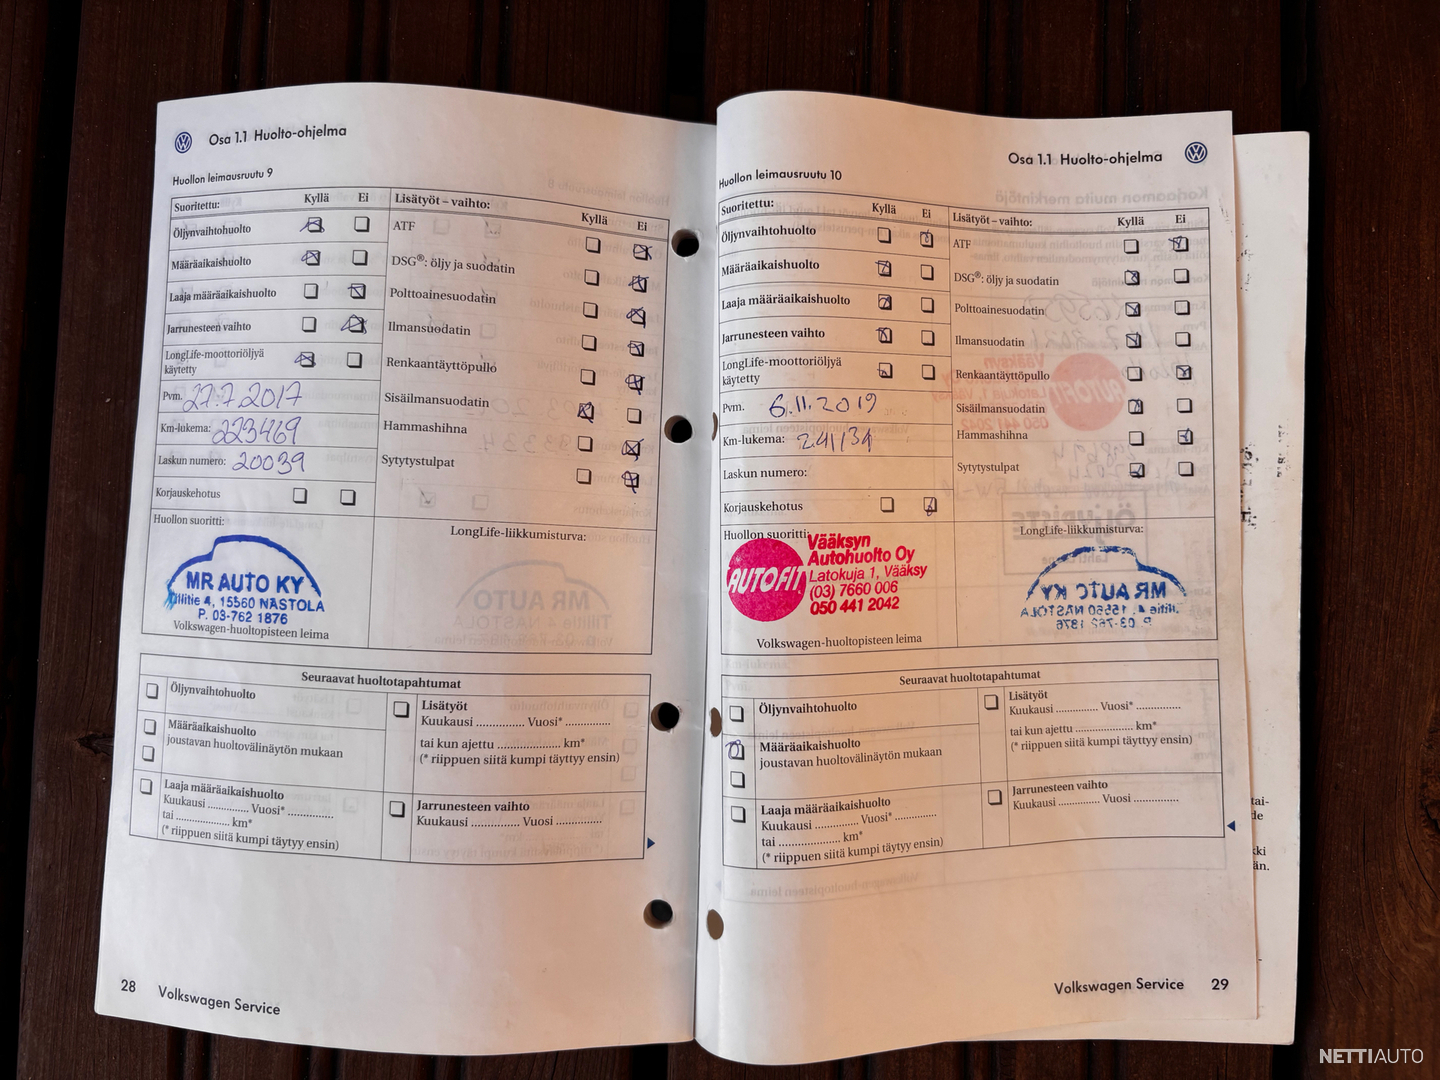 Osa 1.1 Huolto-ohjelma
Huollon leimausruutu 9
Suoritettu: Kyllä Ei
Öljynvaihtohuolto
Määräaikaishuolto
Laaja määräaikaishuolto
Jarrunesteen vaihto
LongLife-moottoriöljyä
käytetty
Pvm. 27.7.2017
Km-lukema: 223469
Laskun numero: 20039
Korjauskehotus
Huollon suoritti:
MR AUTO KY
Tillitie 4, 15560 NASTOLA
P. 03-762 1876
Volkswagen-huoltopisteen leima
Lisätyöt – vaihto: Kyllä Ei
ATF
DSG®: öljy ja suodatin
Polttoainesuodatin
Ilmansuodatin
Renkaantäyttöpullo
Sisäilmansuodatin
Hammashihna
Sytytystulpat
LongLife-liikkumisturva:
Seuraavat huoltotapahtumat
Öljynvaihtohuolto
Määräaikaishuolto
joustavan huoltovälinäytön mukaan
Laaja määräaikaishuolto
Kuukausi .............. Vuosi* ..............
tai .................... km*
(* riippuen siitä kumpi täytyy ensin)
Lisätyöt
Kuukausi .............. Vuosi* ..............
tai kun ajettu .................... km*
(* riippuen siitä kumpi täyttyy ensin)
Jarrunesteen vaihto
Kuukausi .............. Vuosi ..............
28 Volkswagen Service
Osa 1.1 Huolto-ohjelma
Huollon leimausruutu 10
Suoritettu: Kyllä Ei
Öljynvaihtohuolto
Määräaikaishuolto
Laaja määräaikaishuolto
Jarrunesteen vaihto
LongLife-moottoriöljyä
käytetty
Pvm. 6.11.2019
Km-lukema: 241139
Laskun numero:
Korjauskehotus
Huollon suoritti:
AUTOFIT
Vääksyn
Autohuolto Oy
Latokuja 1, Vääksy
(03) 7660 006
050 441 2042
Volkswagen-huoltopisteen leima
Lisätyöt – vaihto: Kyllä Ei
ATF
DSG®: öljy ja suodatin
Polttoainesuodatin
Ilmansuodatin
Renkaantäyttöpullo
Sisäilmansuodatin
Hammashihna
Sytytystulpat
LongLife-liikkumisturva:
MR AUTO KY
Tillitie 4, 15560 NASTOLA
P. 03-762 1876
Seuraavat huoltotapahtumat
Öljynvaihtohuolto
Määräaikaishuolto
joustavan huoltovälinäytön mukaan
Laaja määräaikaishuolto
Kuukausi .............. Vuosi* ..............
tai .................... km*
(* riippuen siitä kumpi täytyy ensin)
Lisätyöt
Kuukausi .............. Vuosi* ..............
tai kun ajettu .................... km*
(* riippuen siitä kumpi täyttyy ensin)
Jarrunesteen vaihto
Kuukausi .............. Vuosi ..............
Volkswagen Service 29
NETTIAUTO